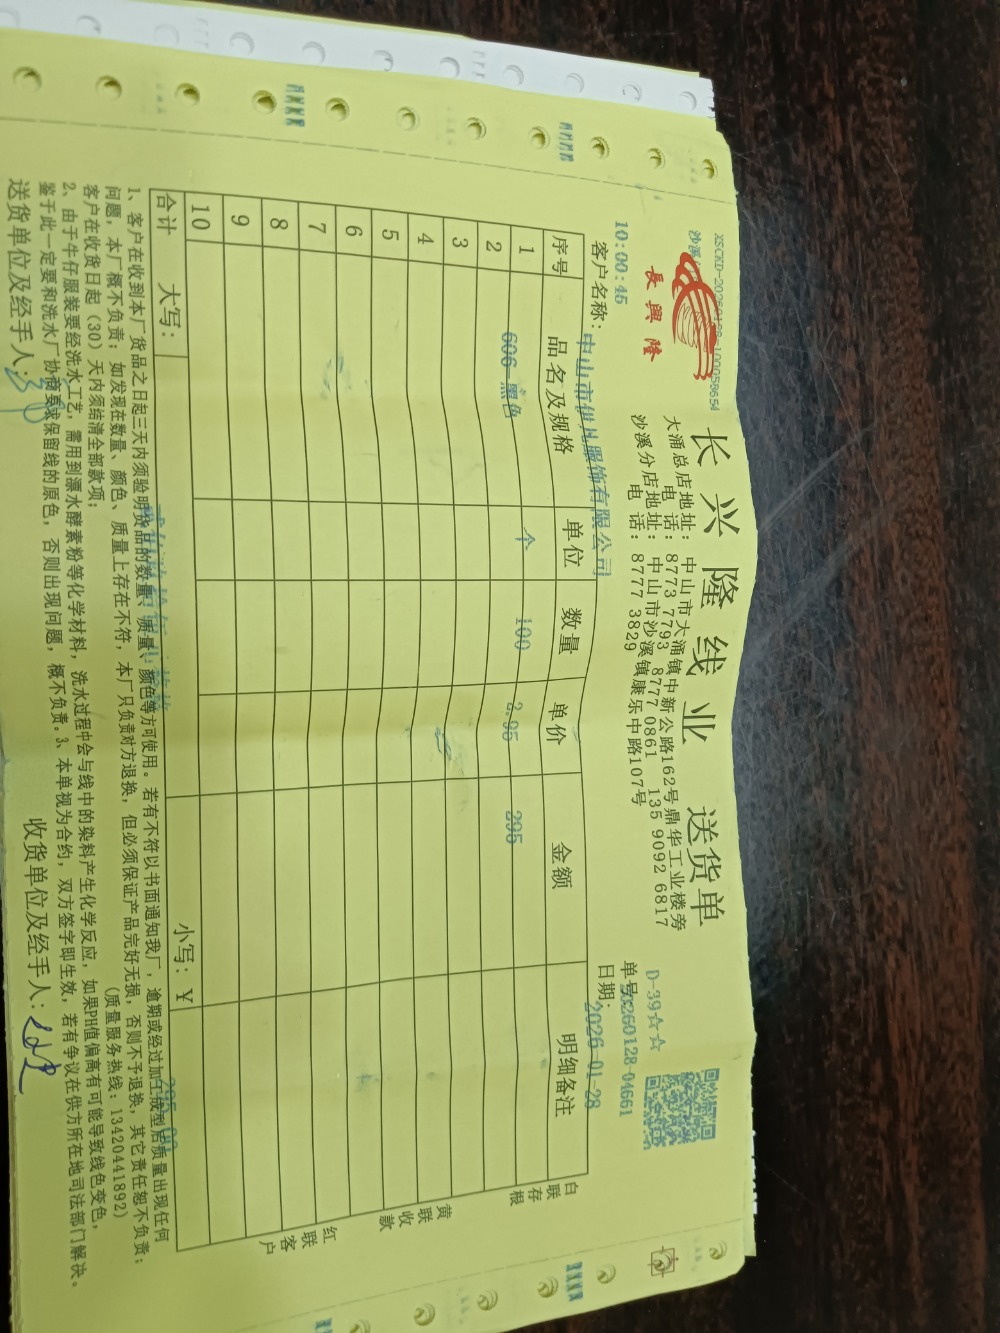 长兴隆线业 送货单
長興隆
大涌总店地址：中山市大涌镇中新公路162号鼎华工业楼旁
电话：8773 7793 8777 0861 135 9092 6817
沙溪分店地址：中山市沙溪镇康乐中路107号
电话：8777 3829
D-39☆☆
单号：20260128-04661
10:00:45
客户名称：中山市伊凡服饰有限公司 日期：2026-01-28
序号 品名及规格 单位 数量 单价 金额 明细备注
1 606-黑色 个 100 2.95 295
2
3
4
5
6
7
8
9
10
合计 大写： 小写：¥
白联存根
黄联收款
红联客户
1、客户在收到本厂货品之日起三天内须验明货品的数量、质量、颜色等方可使用。若有不符以书面通知我厂，逾期或经过加工成型后质量出现任何
问题，本厂概不负责；如发现在数量、颜色、质量上存在不符，本厂只负责对方退换，但必须保证产品完好无损，否则不予退换，其它责任恕不负责；
客户在收货日起（30）天内须结清全部款项； （质量服务热线：13420441892）
2、由于牛仔服装要经洗水工艺，需用到漂水酵素粉等化学材料，洗水过程中会与线中的染料产生化学反应，如果PH值偏高有可能导致线色变色，
鉴于此一定要和洗水厂协商要求保留线的原色，否则出现问题，概不负责。3、本单视为合约，双方签字即生效，若有争议在供方所在地司法部门解决。
送货单位及经手人： 收货单位及经手人：